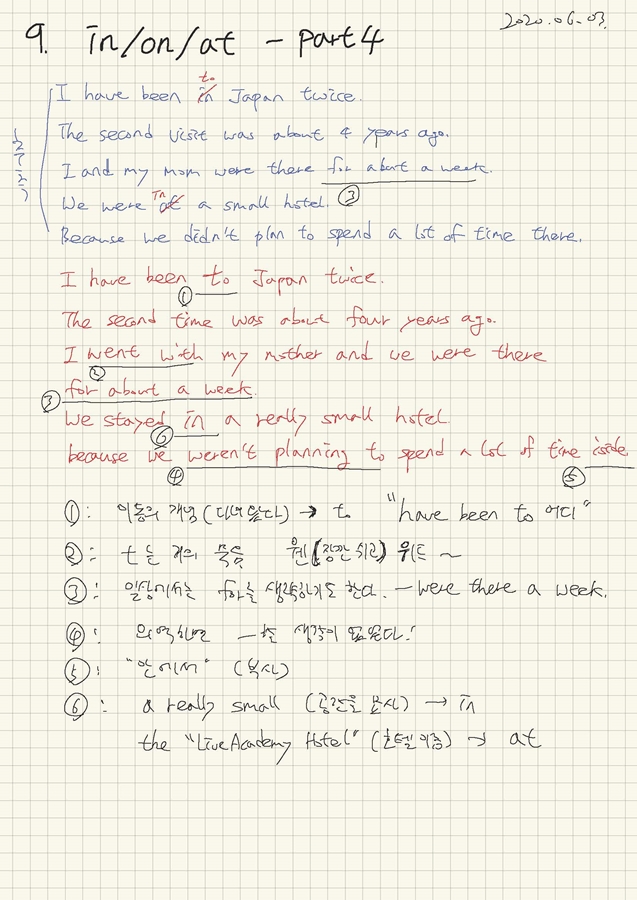 2020.06.03.
9. in/on/at - part 4
to
I have been in Japan twice.
The second visit was about 4 years ago.
I and my mom were there for about a week.
in ③
We were at a small hotel.
Because we didn't plan to spend a lot of time there.
I have been to Japan twice.
①
The second time was about four years ago.
I went with my mother and we were there
②
③ for about a week.
We stayed in a really small hotel.
⑥
because we weren't planning to spend a lot of time inside.
④ ⑤
①: 이동의 개념 (다녀왔다) → to "have been to 어디"
②: t는 거의 묵음 웬(잠깐 쉬고) 위드 ~
③: 일상에서는 for는 생략하기도 한다. - were there a week.
④: 의역하면 ~할 생각이 없었다!
⑤: "안에서" (부사)
⑥: a really small (공간을 묘사) → in
the "LiveAcademy Hotel" (호텔 이름) → at